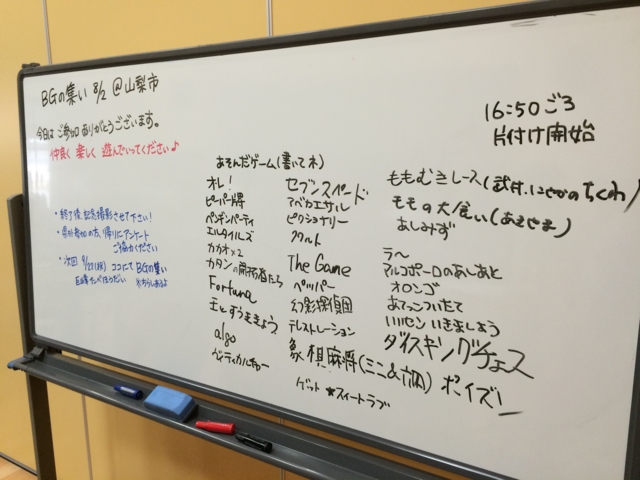 BGの集い 8/2 @山梨市
今日は ご参加 ありがとうございます。
仲良く 楽しく 遊んでいってください♪
・終了後、記念撮影させて下さい!
・県外参加の方、帰りにアンケート
ご協力ください
・次回 9/27(日) ココにて BGの集い
16:50ごろ
片付け開始
あそんだゲーム(書いてネ)
オレ!
ペーパー将
ペンギンパーティ
エルタイルズ
カカオ×2
カタンの開拓者たち
Fortuna
王とずうききょう
algo
ヴィティカルチャー
セブンスペード
アベカエサル
ピクショナリー
クアルト
The Game
ペッパー
幻影探偵団
テレストレーション
象棋麻将(ミニ&
ゲット★スイートラブ
ももむきレース(武村、にせかのちくわ)
モモの大食い(あきやま)
あしみず
ラ〜
マルコポーロのあしあと
オロンゴ
あてっこついたて
いいセン いきましょう
ダイスキングチェス
ポイズン